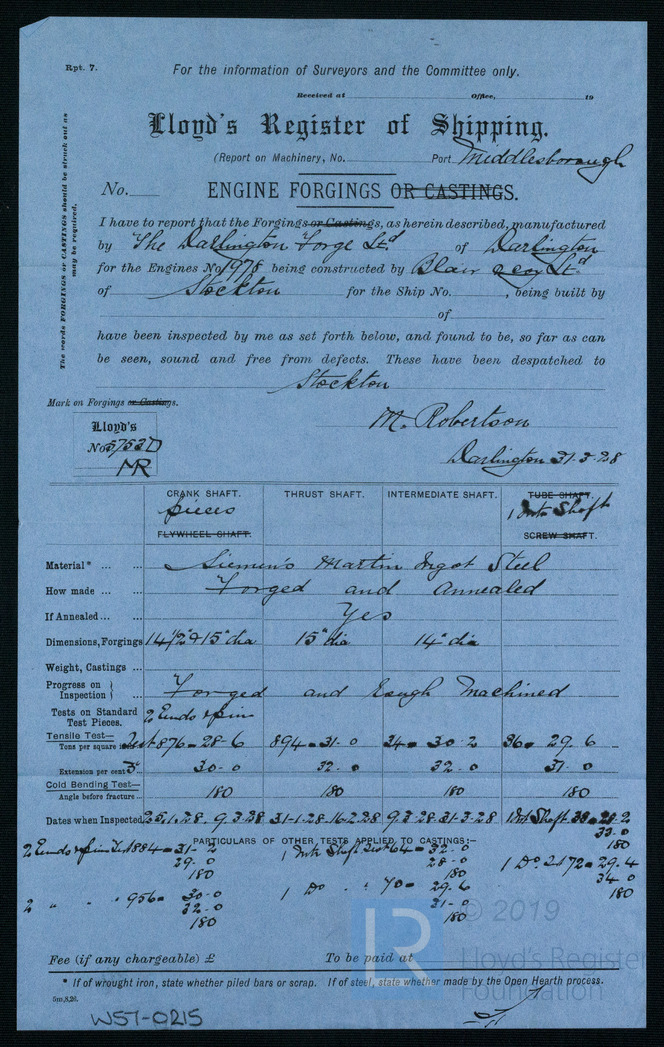 Rpt. 7.
For the information of Surveyors and the Committee only.
Received at Office, 19
Lloyd's Register of Shipping.
(Report on Machinery, No. Port Middlesborough
No.
ENGINE FORGINGS OR CASTINGS.
The words FORGINGS or CASTINGS should be struck out as
may be required.
I have to report that the Forgings or Castings, as herein described, manufactured
by The Darlington Forge Ltd of Darlington
for the Engines No 1978 being constructed by Blair & Coy Ltd
of Stockton for the Ship No. , being built by
of
have been inspected by me as set forth below, and found to be, so far as can
be seen, sound and free from defects. These have been despatched to
Stockton
Mark on Forgings or Castings.
M. Robertson
Lloyd's
No 5753D
MR
Darlington 31-3-28
CRANK SHAFT. THRUST SHAFT. INTERMEDIATE SHAFT. TUBE SHAFT.
pieces 1 Shaft
FLYWHEEL SHAFT. SCREW SHAFT.
Material* Siemens Martin Ingot Steel
How made Forged and Annealed
If Annealed Yes
Dimensions, Forgings 14½" & 15" dia 15" dia 14" dia
Weight, Castings
Progress on Inspection Forged and Rough Machined
Tests on Standard
Test Pieces. 2 Ends & pin
Tensile Test—
Tons per square inch Test 876 - 28-6 894 - 31-0 34 - 30-2 36 - 29-6
Extension per cent 3" 30-0 32-0 32-0 31-0
Cold Bending Test—
Angle before fracture 180 180 180 180
Dates when Inspected 25.1.28. 9.3.28 31-1-28-16-2-28 9-3-28-31-3-28 Shaft 38 - 28-2
33-0
180
PARTICULARS OF OTHER TESTS APPLIED TO CASTINGS:—
2 Ends & pin Test 884 - 31-2 1 Shaft Test 64 - 32-0
29-0 28-0 1 Do. 72 - 29.4
180 180 34-0
2 " " " 956 - 30-0 1 Do " " 70 - 29-6 180
32-0 31-0
180 180
© 2019
Lloyd's Register
Foundation
LR
Fee (if any chargeable) £ To be paid at
* If of wrought iron, state whether piled bars or scrap. If of steel, state whether made by the Open Hearth process.
5m,8,20.
W57-0215